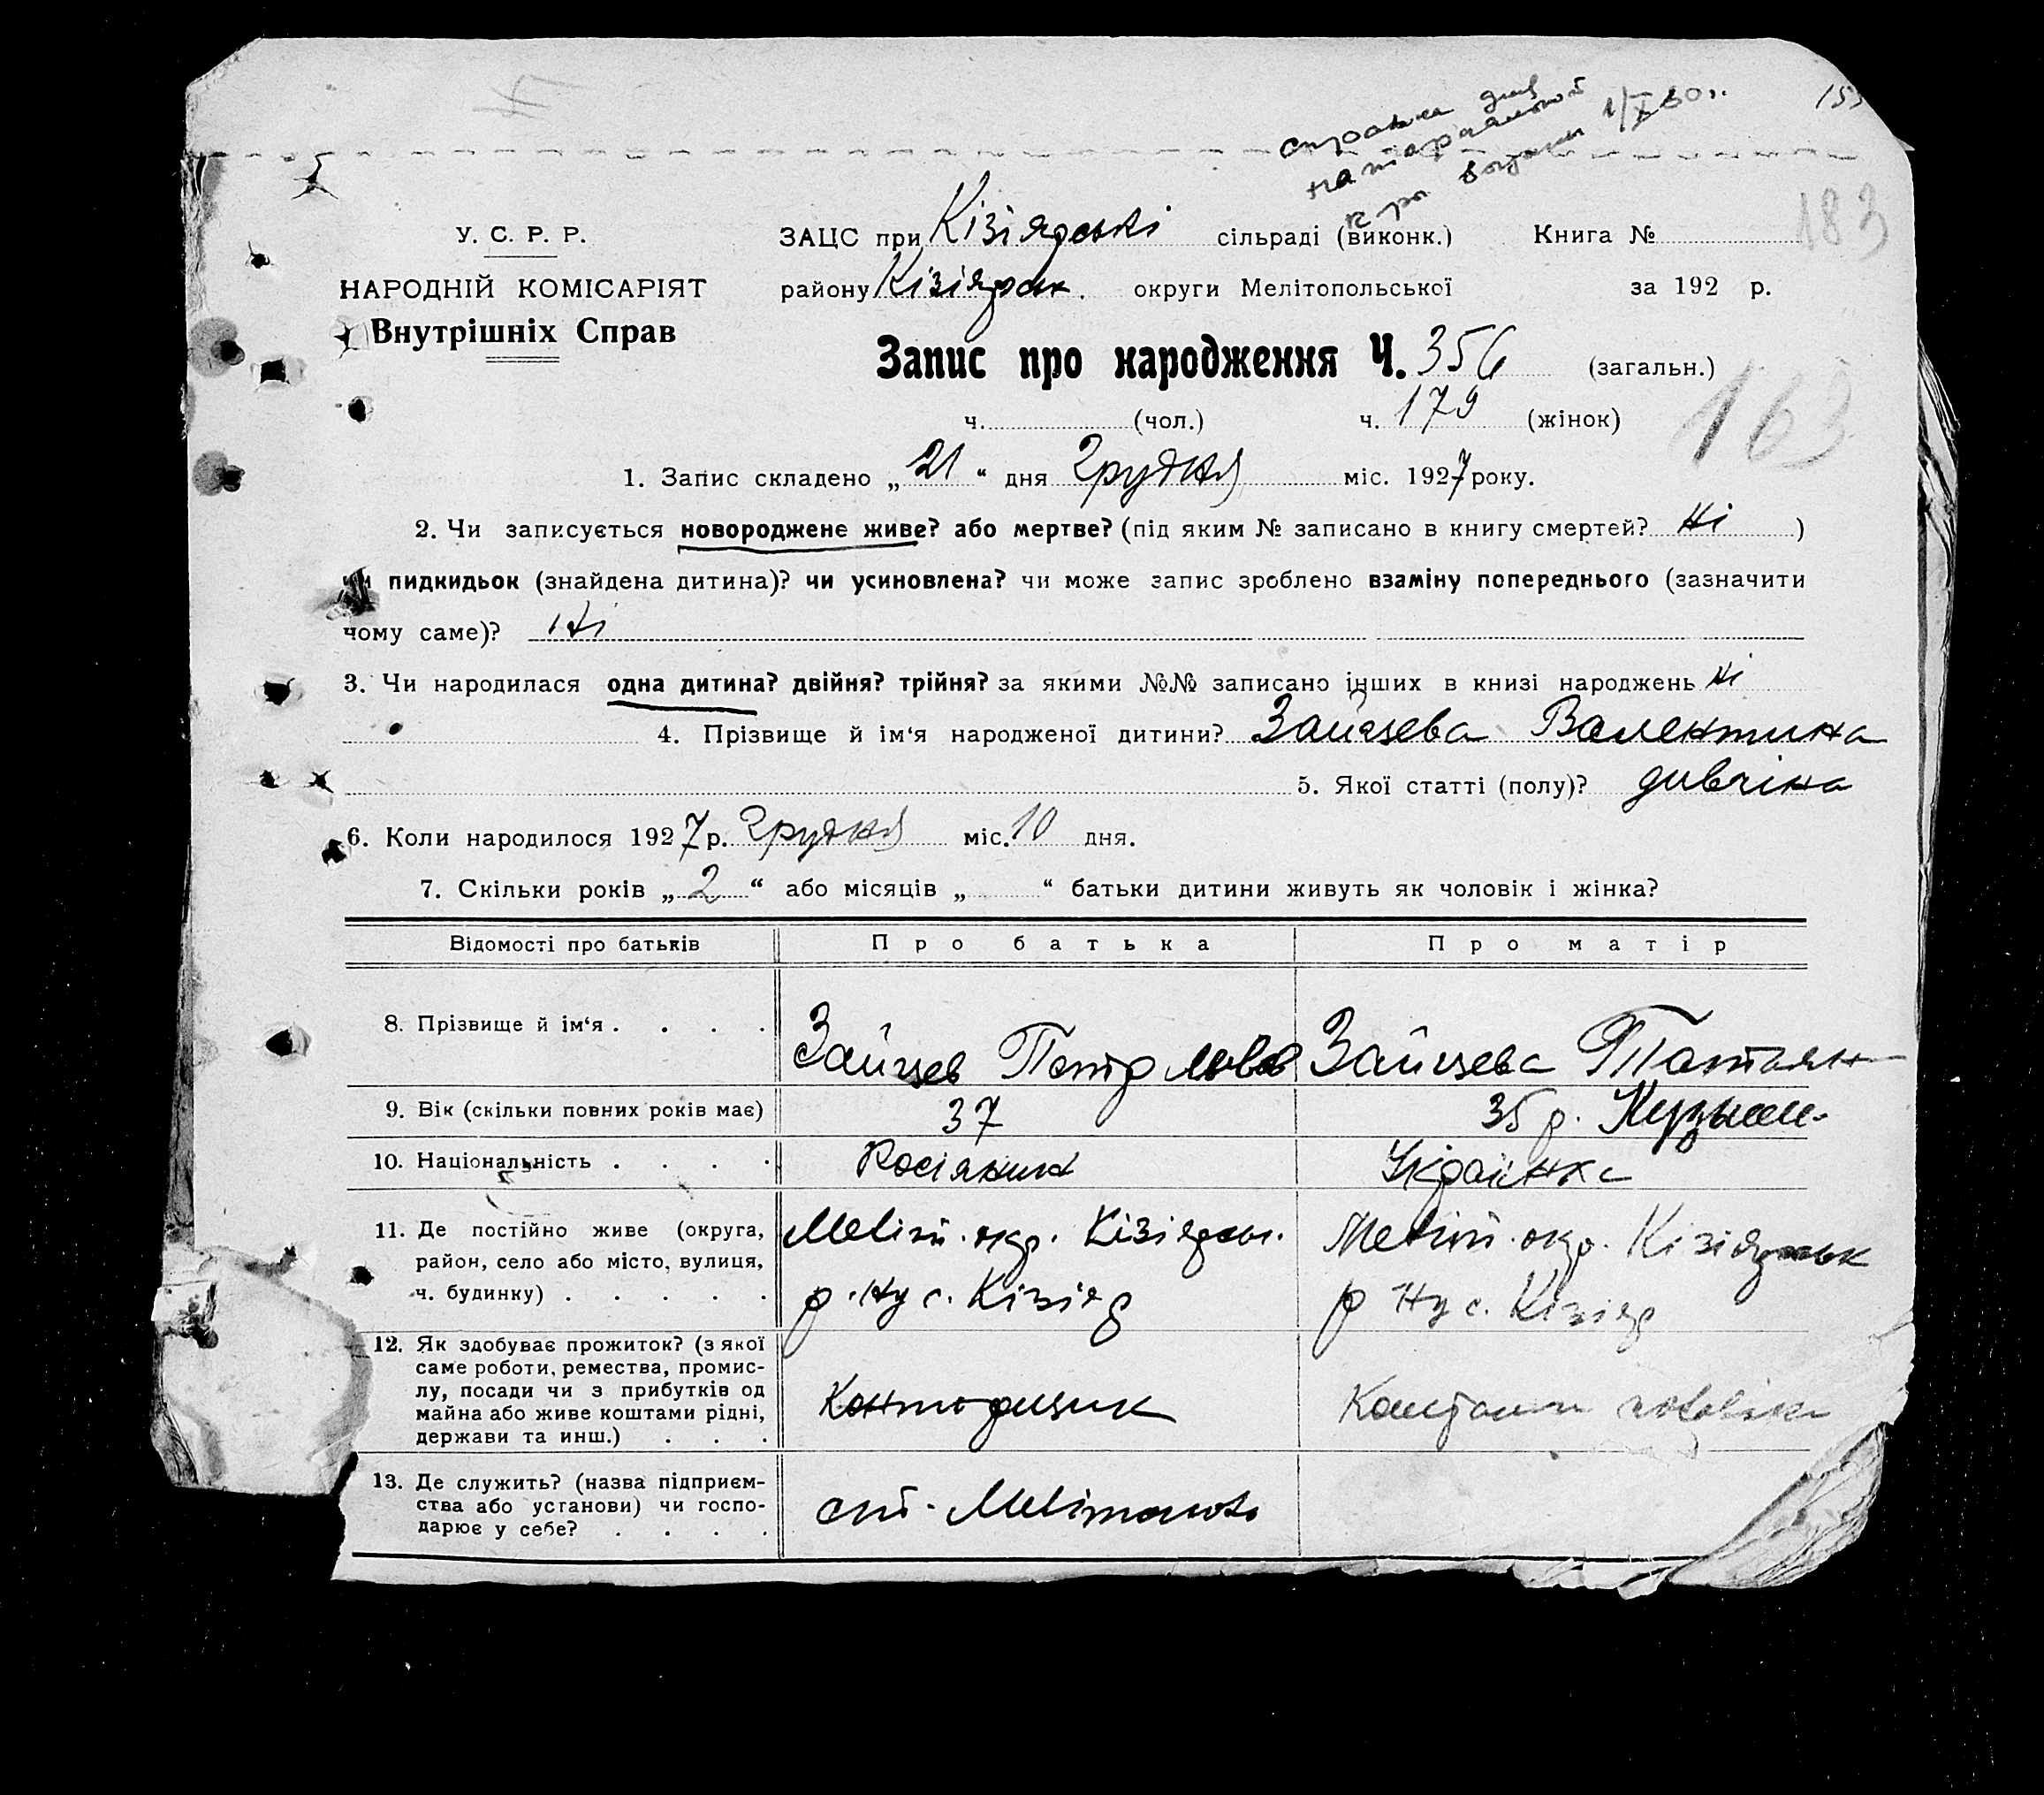 справка дана
1/X 30 г.
183
У. С. Р. Р.
ЗАЦС при Кізіярські сільраді (виконк.) Книга №
НАРОДНІЙ КОМІСАРІЯТ
району Кізіярськ. округи Мелітопольської за 192 р.
Внутрішніх Справ
Запис про народження Ч. 356 (загальн.)
163
ч. (чол.) ч. 179 (жінок)
1. Запис складено „ 21 “ дня грудня міс. 1927 року.
2. Чи записується новороджене живе? або мертве? (під яким № записано в книгу смертей? Ні )
чи пидкидьок (знайдена дитина)? чи усиновлена? чи може запис зроблено взаміну попереднього (зазначити
чому саме)? Ні
3. Чи народилася одна дитина? двійня? трійня? за якими №№ записано інших в книзі народжень Ні
4. Прізвище й ім‘я народженої дитини? Зайцева Валентина
5. Якої статті (полу)? дивчіна
6. Коли народилося 1927 р. грудня міс. 10 дня.
7. Скільки років „ 2 “ або місяців „ “ батьки дитини живуть як чоловік і жінка?
Відомості про батьків Про батька Про матір
8. Прізвище й ім‘я . . . .
Зайцев Петр Зайцева Татьян
9. Вік (скільки повних років має) 37 35 р.
10. Національність . . . . Росіянин Українка
11. Де постійно живе (округа, Меліт. окр. Кізіярськ. Меліт. окр. Кізіярськ
район, село або місто, вулиця,
ч. будинку) . . . . . р. Ну с. Кізіяр р Ну с. Кізіяр
12. Як здобуває прожиток? (з якої
саме роботи, ремества, промис-
лу, посади чи з прибутків од
майна або живе коштами рідні,
держави та инш.) . . .
Конторщик Коштами чоловіка
13. Де служить? (назва підприєм-
ства або установи) чи госпо-
дарює у себе? . . . .
ст. Мелітополь